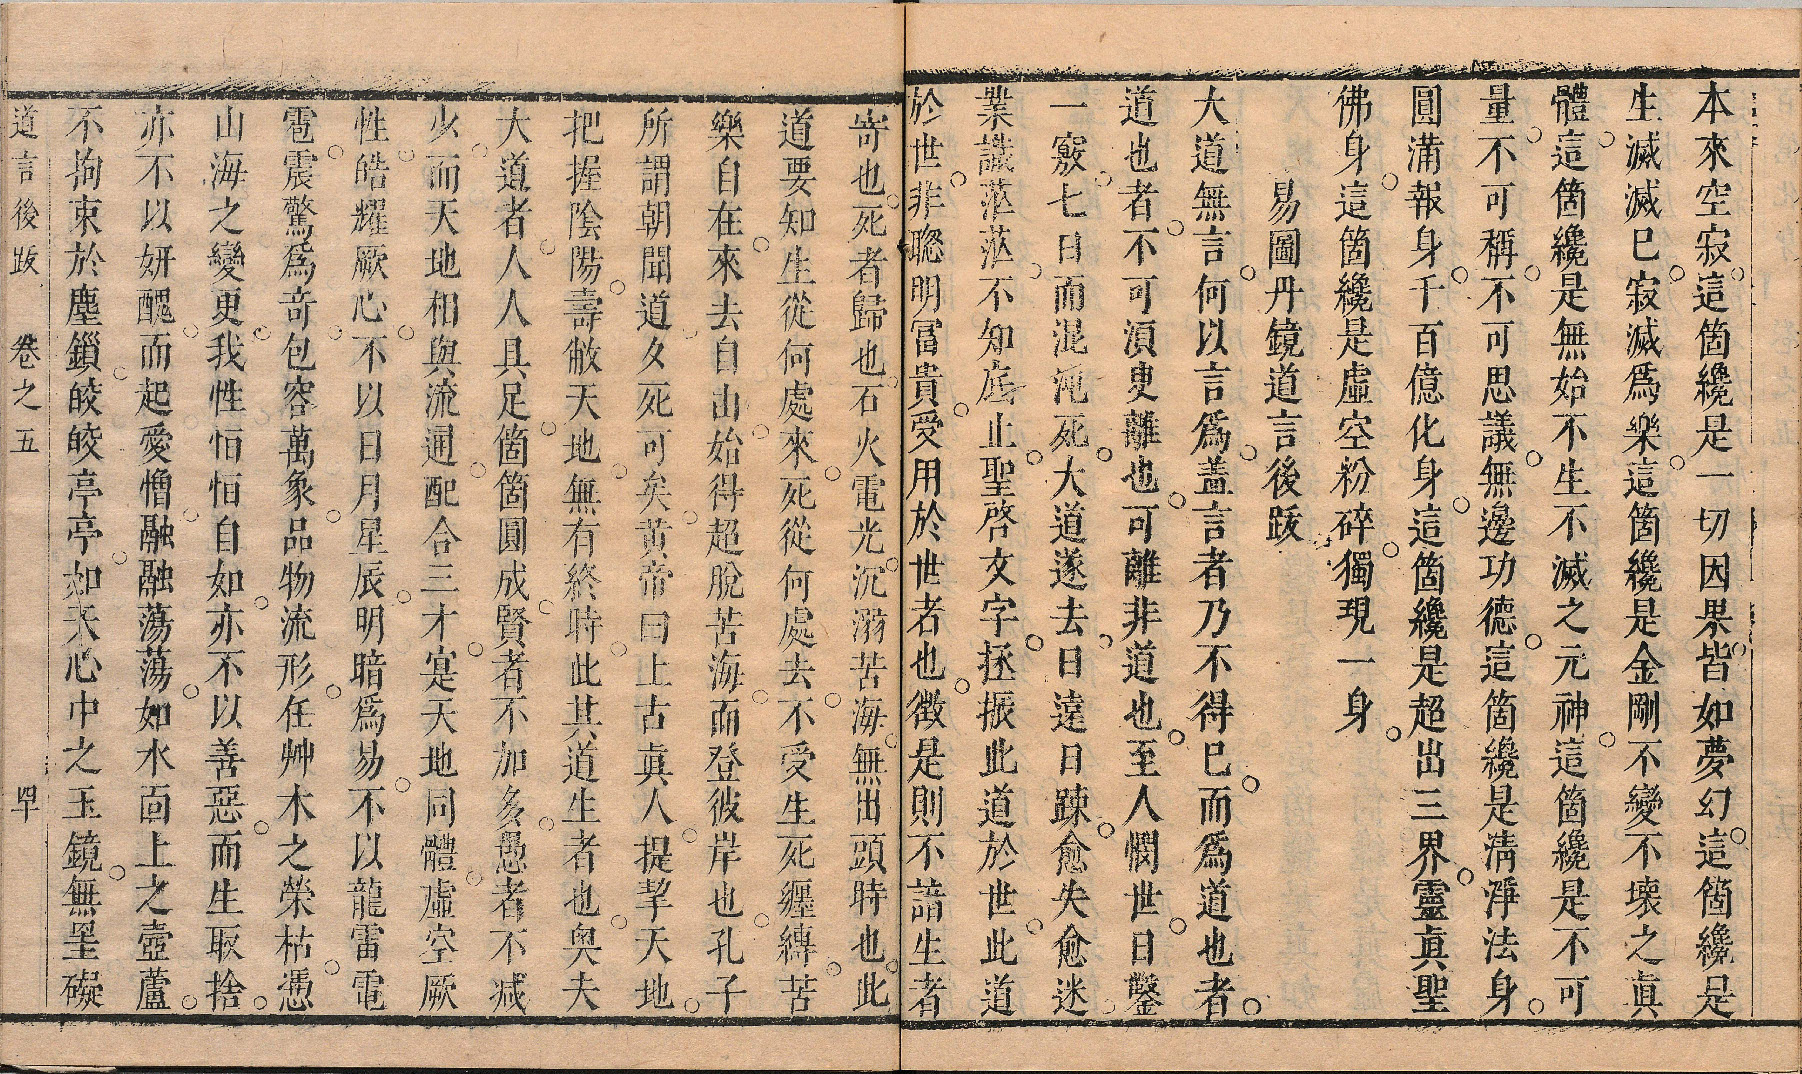 本來空寂這箇纔是一切因果皆如夢幻這箇纔是
生滅滅已寂滅爲樂這箇纔是金剛不變不壞之眞
體這箇纔是無始不生不滅之元神這箇纔是不可
量不可稱不可思議無邊功德這箇纔是淸淨法身
圓滿報身千百億化身這箇纔是超出三界靈眞聖
佛身這箇纔是虛空粉碎獨現一身
易圖丹鏡道言後跋
大道無言何以言爲盖言者乃不得已而爲道也者
道也者不可須臾離也可離非道也至人憫世日鑿
一竅七日而混沌死大道遂去日遠日踈愈失愈迷
業識茫茫不知底止聖啓文字拯振此道於世此道
於世非聰明冨貴受用於世者也徵是則不諳生者
寄也死者歸也石火電光沉溺苦海無出頭時也此
道要知生從何處來死從何處去不受生死纏縛苦
樂自在來去自由始得超脫苦海而登彼岸也孔子
所謂朝聞道夕死可矣黃帝曰上古眞人提挈天地
把握陰陽壽敝天地無有終時此其道生者也奥夫
大道者人人具足箇箇圓成賢者不加多愚者不减
少而天地相與流通配合三才寔天地同體虛空厥
性皓耀厥心不以日月星辰明暗爲易不以龍雷電
雹震驚爲竒包容萬象品物流形任艸木之榮枯憑
山海之變更我性怕怕自如亦不以善惡而生取捨
亦不以妍醜而起愛憎融融蕩蕩如水面上之壺蘆
不拘束於塵鎖皎皎亭亭如禾心中之玉鏡無罣礙
道言後跋 卷之五 四十